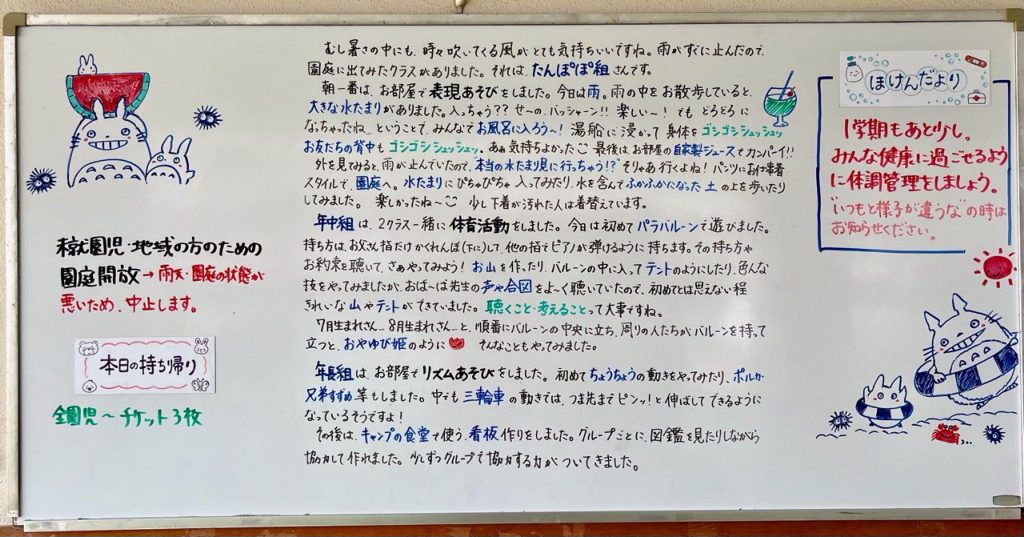 むし暑さの中にも、時々吹いてくる風がとても気持ちいいですね。雨がすぐに止んだので、
園庭に出てみたクラスがありました。それは、たんぽぽ組さんです。
朝一番は、お部屋で表現あそびをしました。今日は雨。雨の中をお散歩していると、
大きな水たまりがありました。入っちゃう??せーの、バッシャーン!!楽しい〜!でもどろどろに
なっちゃったね…ということで、みんなでお風呂に入ろう〜!湯船に浸かって身体をゴシゴシシュッシュッ
お友だちの背中もゴシゴシシュッシュッ。あぁ気持ちよかった 最後は、お部屋の自家製ジュースでカンパーイ!!
外を見てみると、雨が止んでいたので、本当の水たまり見に行っちゃう!?そりゃあ行くよね!パンツにお下着
スタイルで、園庭へ。水たまりにぴちゃぴちゃ入ってみたり、水を含んでふかふかになった土の上を歩いたり
してみました。楽しかったね〜 少し下着が汚れた人は着替えています。
年中組は、2クラス一緒に体育活動をしました。今日は初めてパラバルーンで遊びました。
持ち方は、お父さん指だけかくれんぼ(下に)して、他の指でピアノが弾けるように持ちます。その持ち方や
お約束を聴いて、さぁやってみよう!お山を作ったり、バルーンの中に入ってテントのようにしたり、色んな
技をやってみましたが、おば〜ば先生の声や合図をよ〜く聴いていたので、初めてとは思えない程
きれいな山やテントができていました。聴くこと・考えることって大事ですね。
7月生まれさん…8月生まれさん…と、順番にバルーンの中央に立ち、周りの人たちがバルーンを持って
立つと、おやゆび姫のように そんなこともやってみました。
年長組は、お部屋でリズムあそびをしました。初めてちょうちょうの動きをやってみたり、ポルカ、
兄弟すずめ等もしました。中でも三輪車の動きでは、つま先までピンッ!と伸ばしてできるように
なっているそうですよ!
その後は、キャンプの食堂で使う、看板作りをしました。グループごとに、図鑑を見たりしながら
協力して作れました。少しずつグループで協力する力がついてきました。
園児・地域の方のための
園庭開放→雨天・園庭の状態が
悪いため、中止します。
本日の持ち帰り
全園児〜チケット3枚
ほけんだより
1学期もあと少し。
みんな健康に過ごせるよう
に体調管理をしましょう。
"いつもと様子が違うな"の時は
お知らせください。